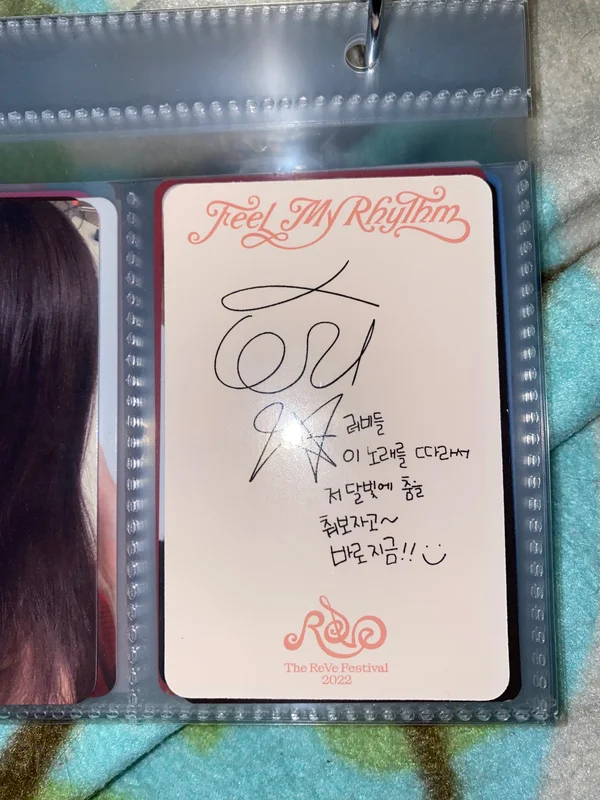 Feel My Rhythm
러비들
이 노래를 따라서
저 달빛에 춤을
춰보자고~
바로지금!!
ReVe
The ReVe Festival
2022